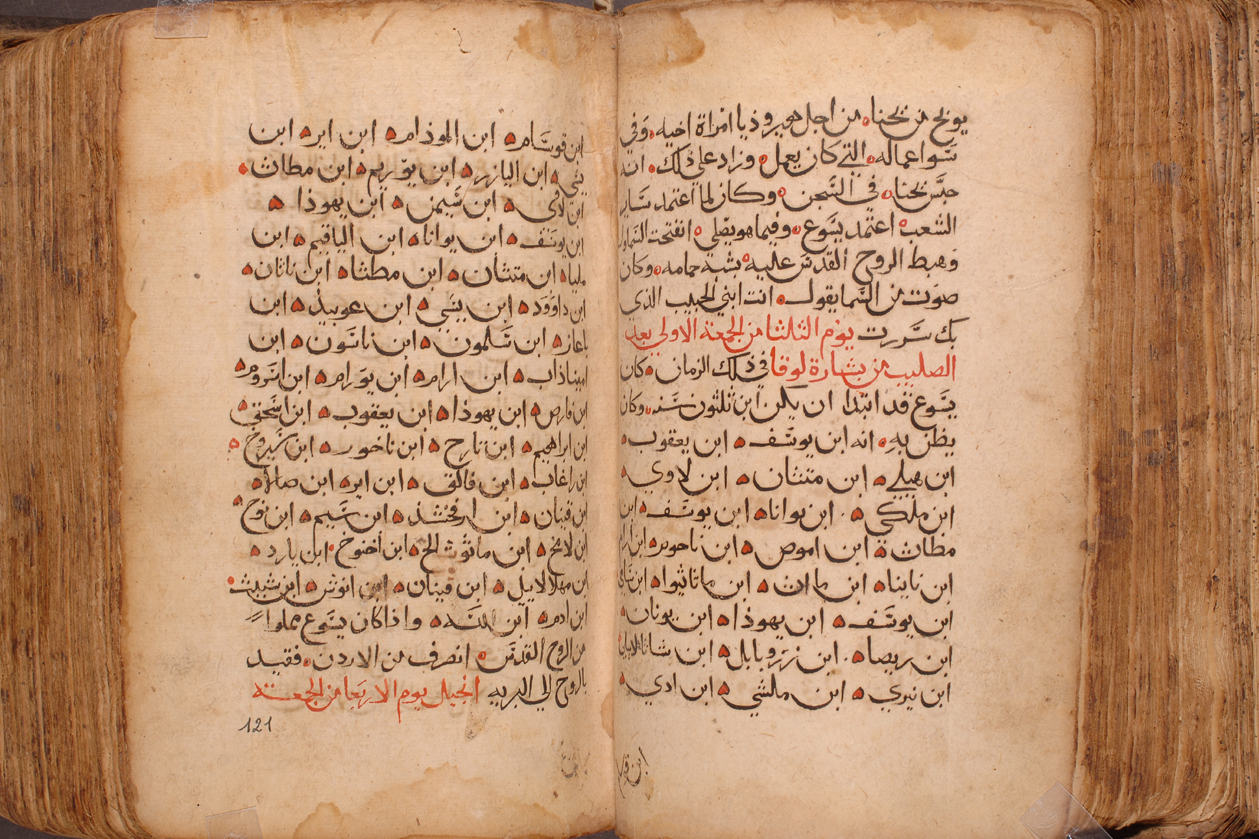 يوبخ من يحنا من اجل هيروذيا امراة اخيه وفي
سوا اعماله التي كان يعمل وزاد على ذلك انه
حبس يحنا في السجن وكان لما اعتمد ساير
الشعب اعتمد يسوع وفيما هو يصلي انفتحت السماوا
وهبط الروح القدس عليه بشبه حمامه وكان
صوت من السما يقول انت ابني الحبيب الذي
بك سررت يوم الثلثا من الجمعة الاولى بعد
الصليب من بشارة لوقا في ذلك الزمان وكان
يسوع قد ابتدا ان يكن ابن ثلثون سنه وكان
يظن به انه ابن يوسف ابن يعقوب
ابن هيلي ابن متثان ابن لاوي
ابن ملكي ابن يوانا ابن يوسف ابن
مطاث ابن اموص ابن ناحوم ابن
ابن نابنا ابن ماات ابن ماثاثيوا ابن
ابن يوسف ابن يهوذا ابن يونان
ابن ريصا ابن زروبابل ابن
ابن نيري ابن ملشي ابن ادي
ابن قوسام ابن الموذام ابن اير ابن
يسي ابن اليازر ابن يوريم ابن مطاث
ابن لاوي ابن شيمن ابن يهوذا
ابن يوسف ابن يوانا ابن الياقيم ابن
مليا ابن متثان ابن مطثا ابن ناثان
ابن داوود ابن يسي ابن عوبيذ ابن
باعاز ابن شلمون ابن ناشون ابن
اميناذاب ابن ارام ابن يورام ابن اسروم
ابن فارص ابن يهوذا ابن يعقوب ابن اسحق
ابن ابراهيم ابن تارح ابن ناخور ابن سروخ
ابن راغاب ابن فالق ابن ابر ابن صالا
ابن قينان ابن ارفخشذ ابن سيم ابن نوح
ابن لامخ ابن ماثوشالح ابن اخنوخ ابن يارد
ابن مهلالايل ابن قينان ابن انوش ابن شيث
ابن ادم ابن الله واذا كان يسوع مملوا
من الروح القدس انصرف من الاردن فقيد
بالروح الى البريه انجيل يوم الاربعا من الجمعة
121